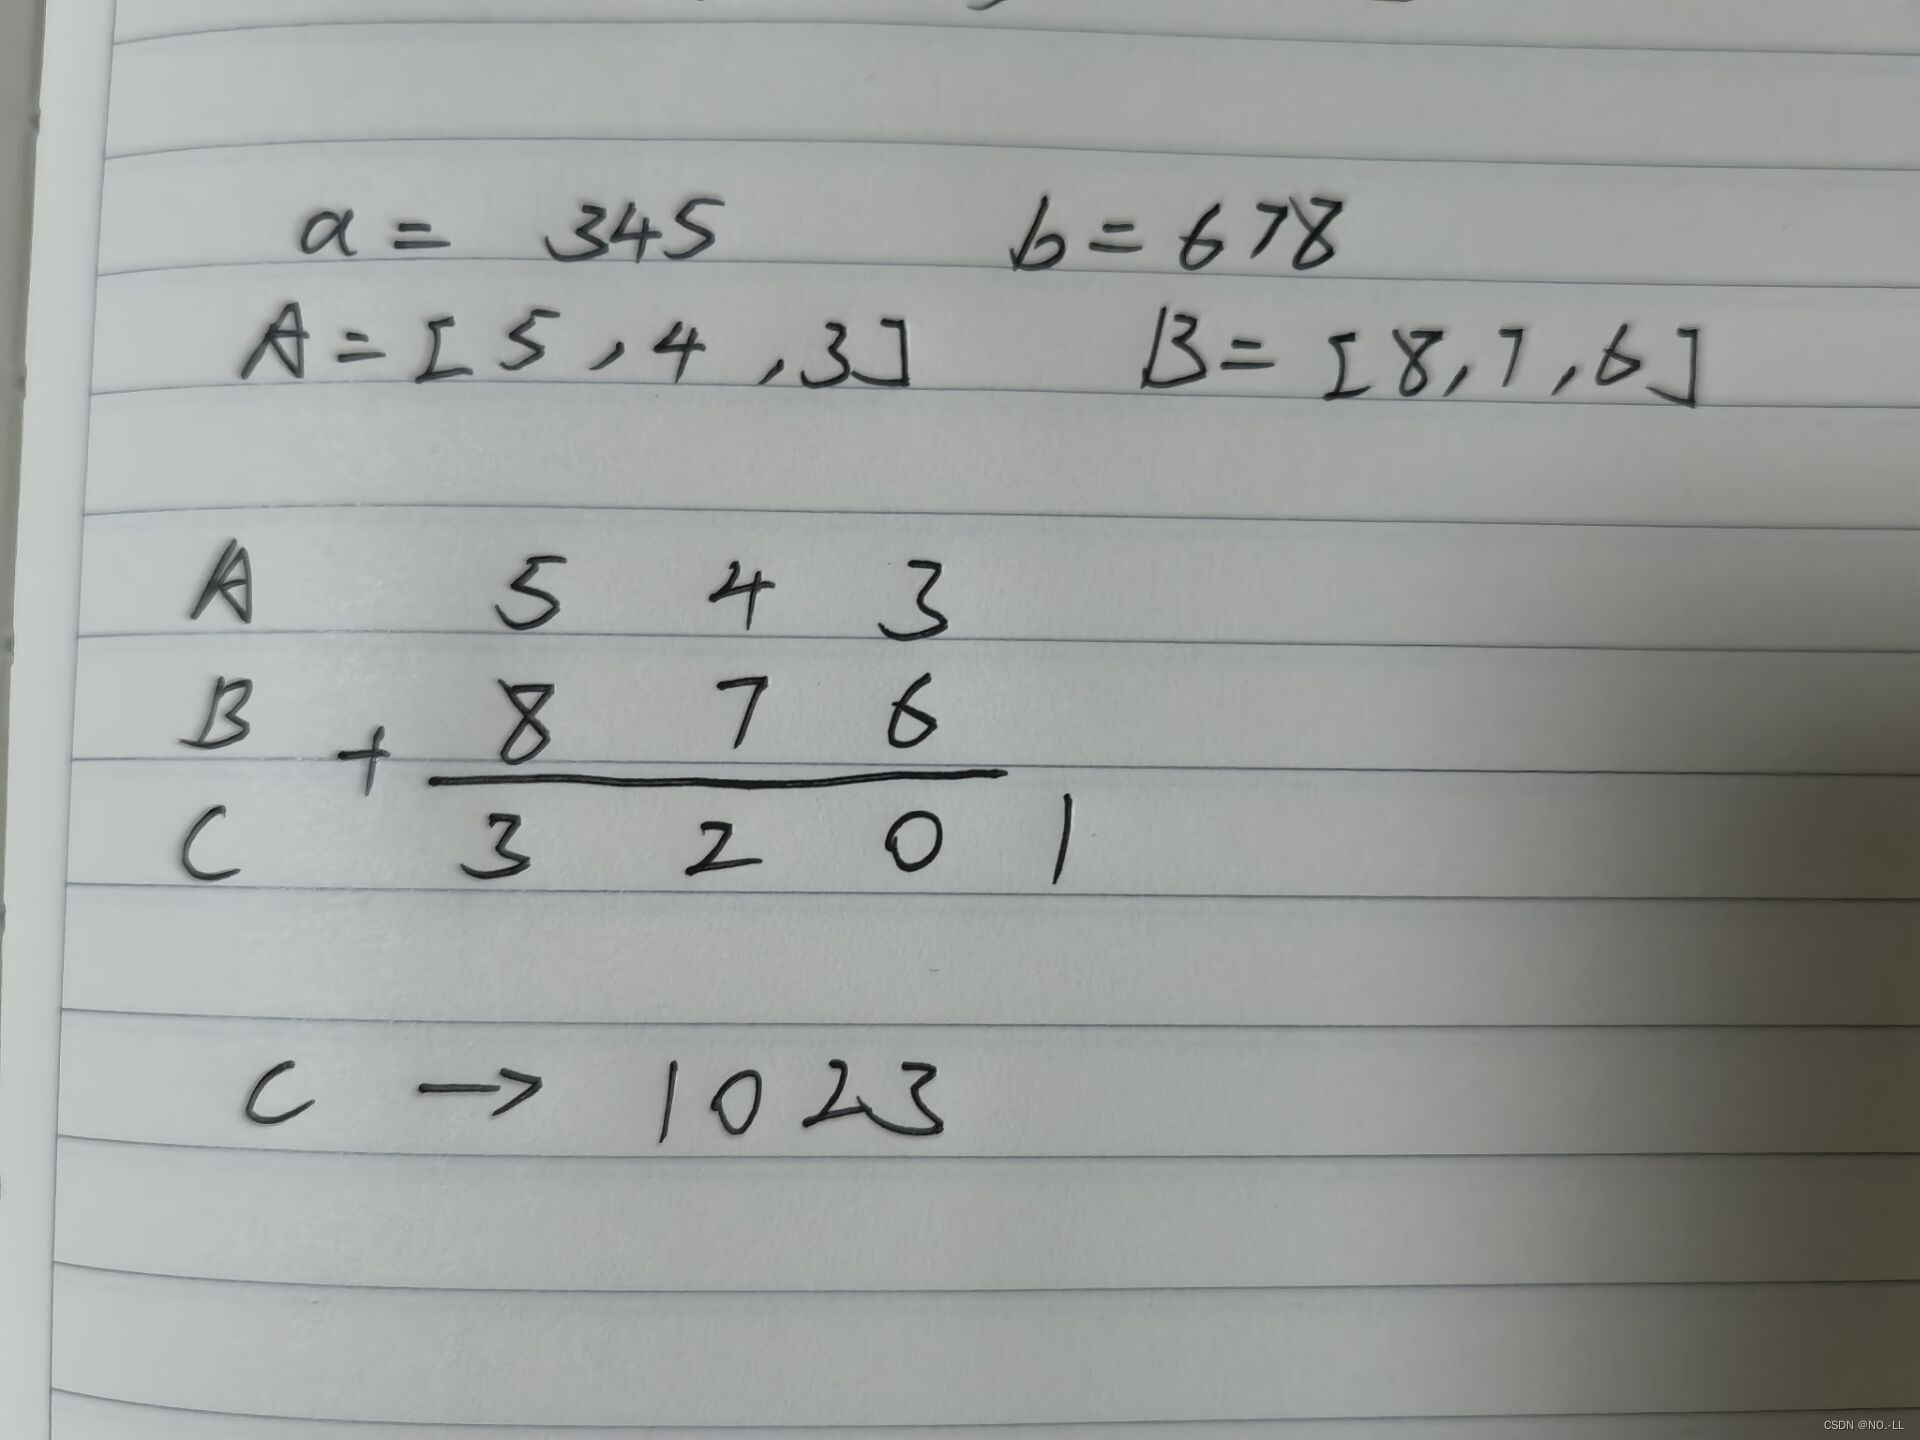 a = 345 b = 678
A = [5,4,3] B = [8,7,6]
A 5 4 3
B + 8 7 6
C 3 2 0 1
C → 1023
CSDN @NO.-LL